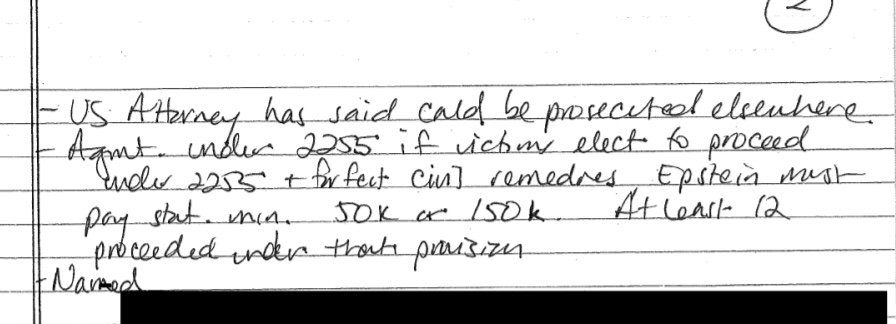 2
- US Attorney has said could be prosecuted elsewhere.
- Agmt. under 2255 if victim elect to proceed
under 2255 + forfeit civil remedies Epstein must
pay stat. min. 50k or 150k. At least 12
proceeded under that provision
- Named